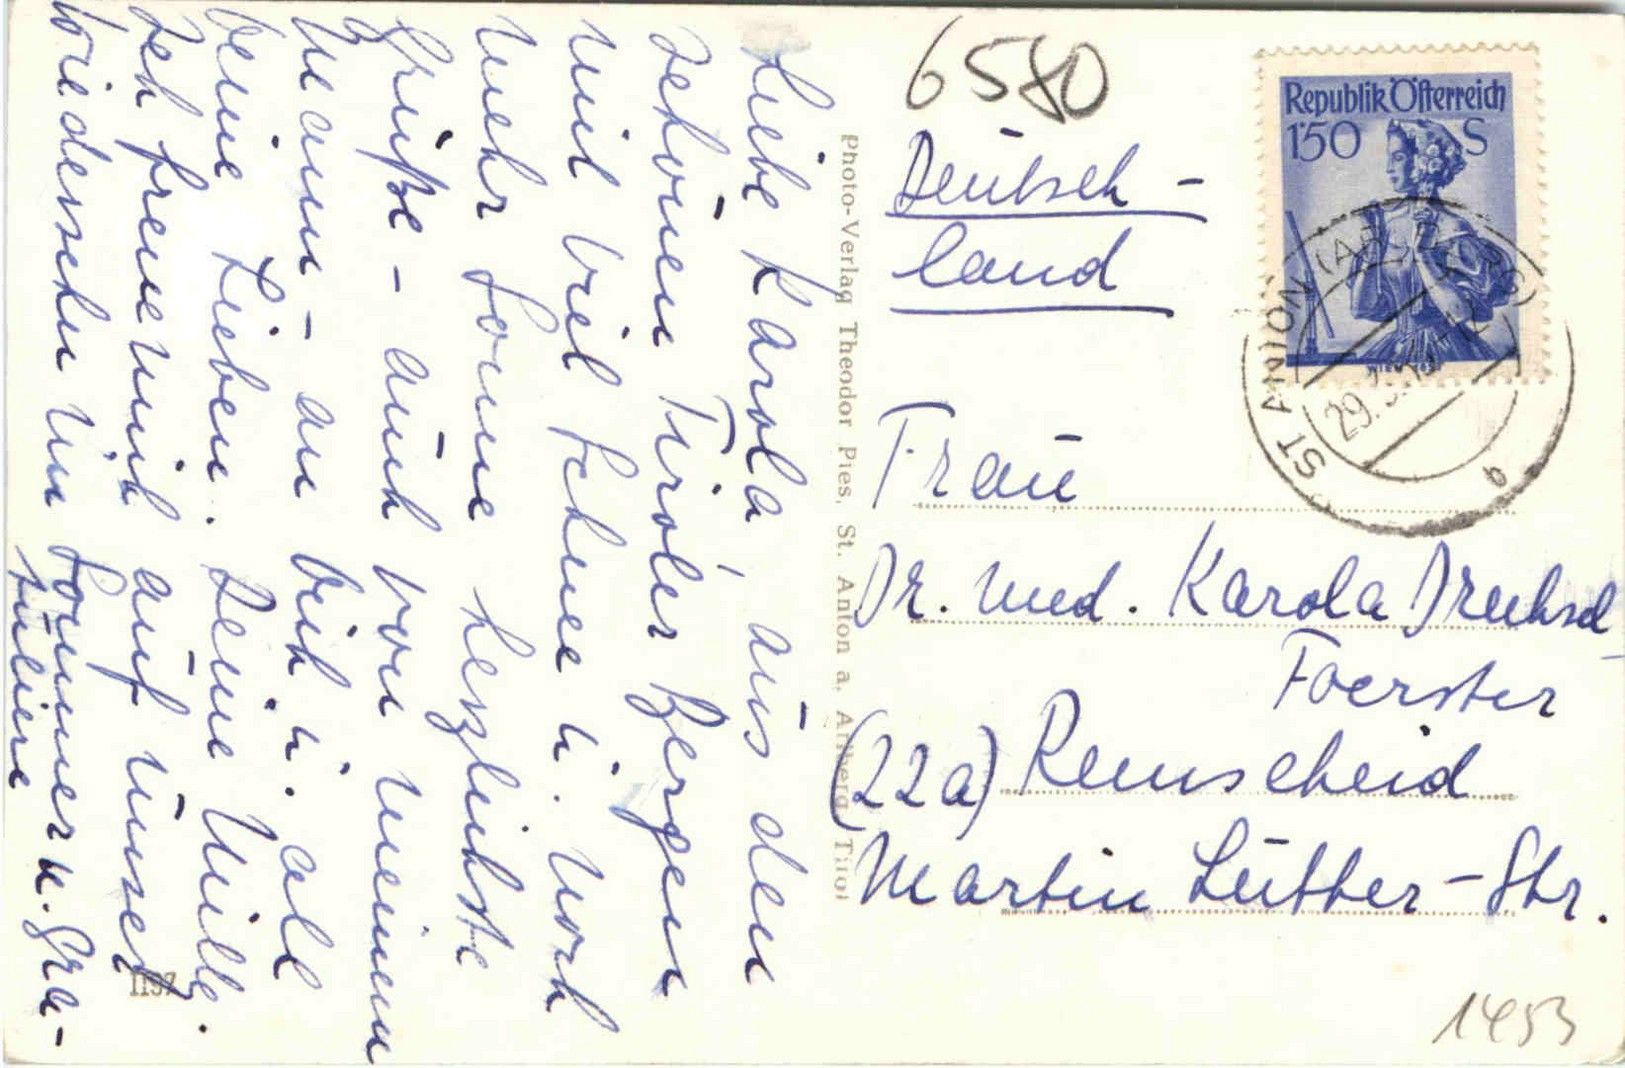 Liebe Karola, aus den
schönen Tiroler Bergen
mit viel Schnee u. noch
mehr Sonne herzlichste
Grüße – auch von meinem
Mann – an Dich u. all
Deine Lieben. Deine Milly.
Ich freue mich auf unser
Wiedersehen im Sommer u. Gra-
tuliere
1137
Photo-Verlag Theodor Pies, St. Anton a. Arlberg Tirol
6580
Republik Österreich
1'50 S
WIEN
ST ANTON (ARLBERG)
29.3.
Deutsch-
land
Frau
Dr. med. Karola Drechsel-
Foerster
(22a) Remscheid
Martin Luther-Str.
1453